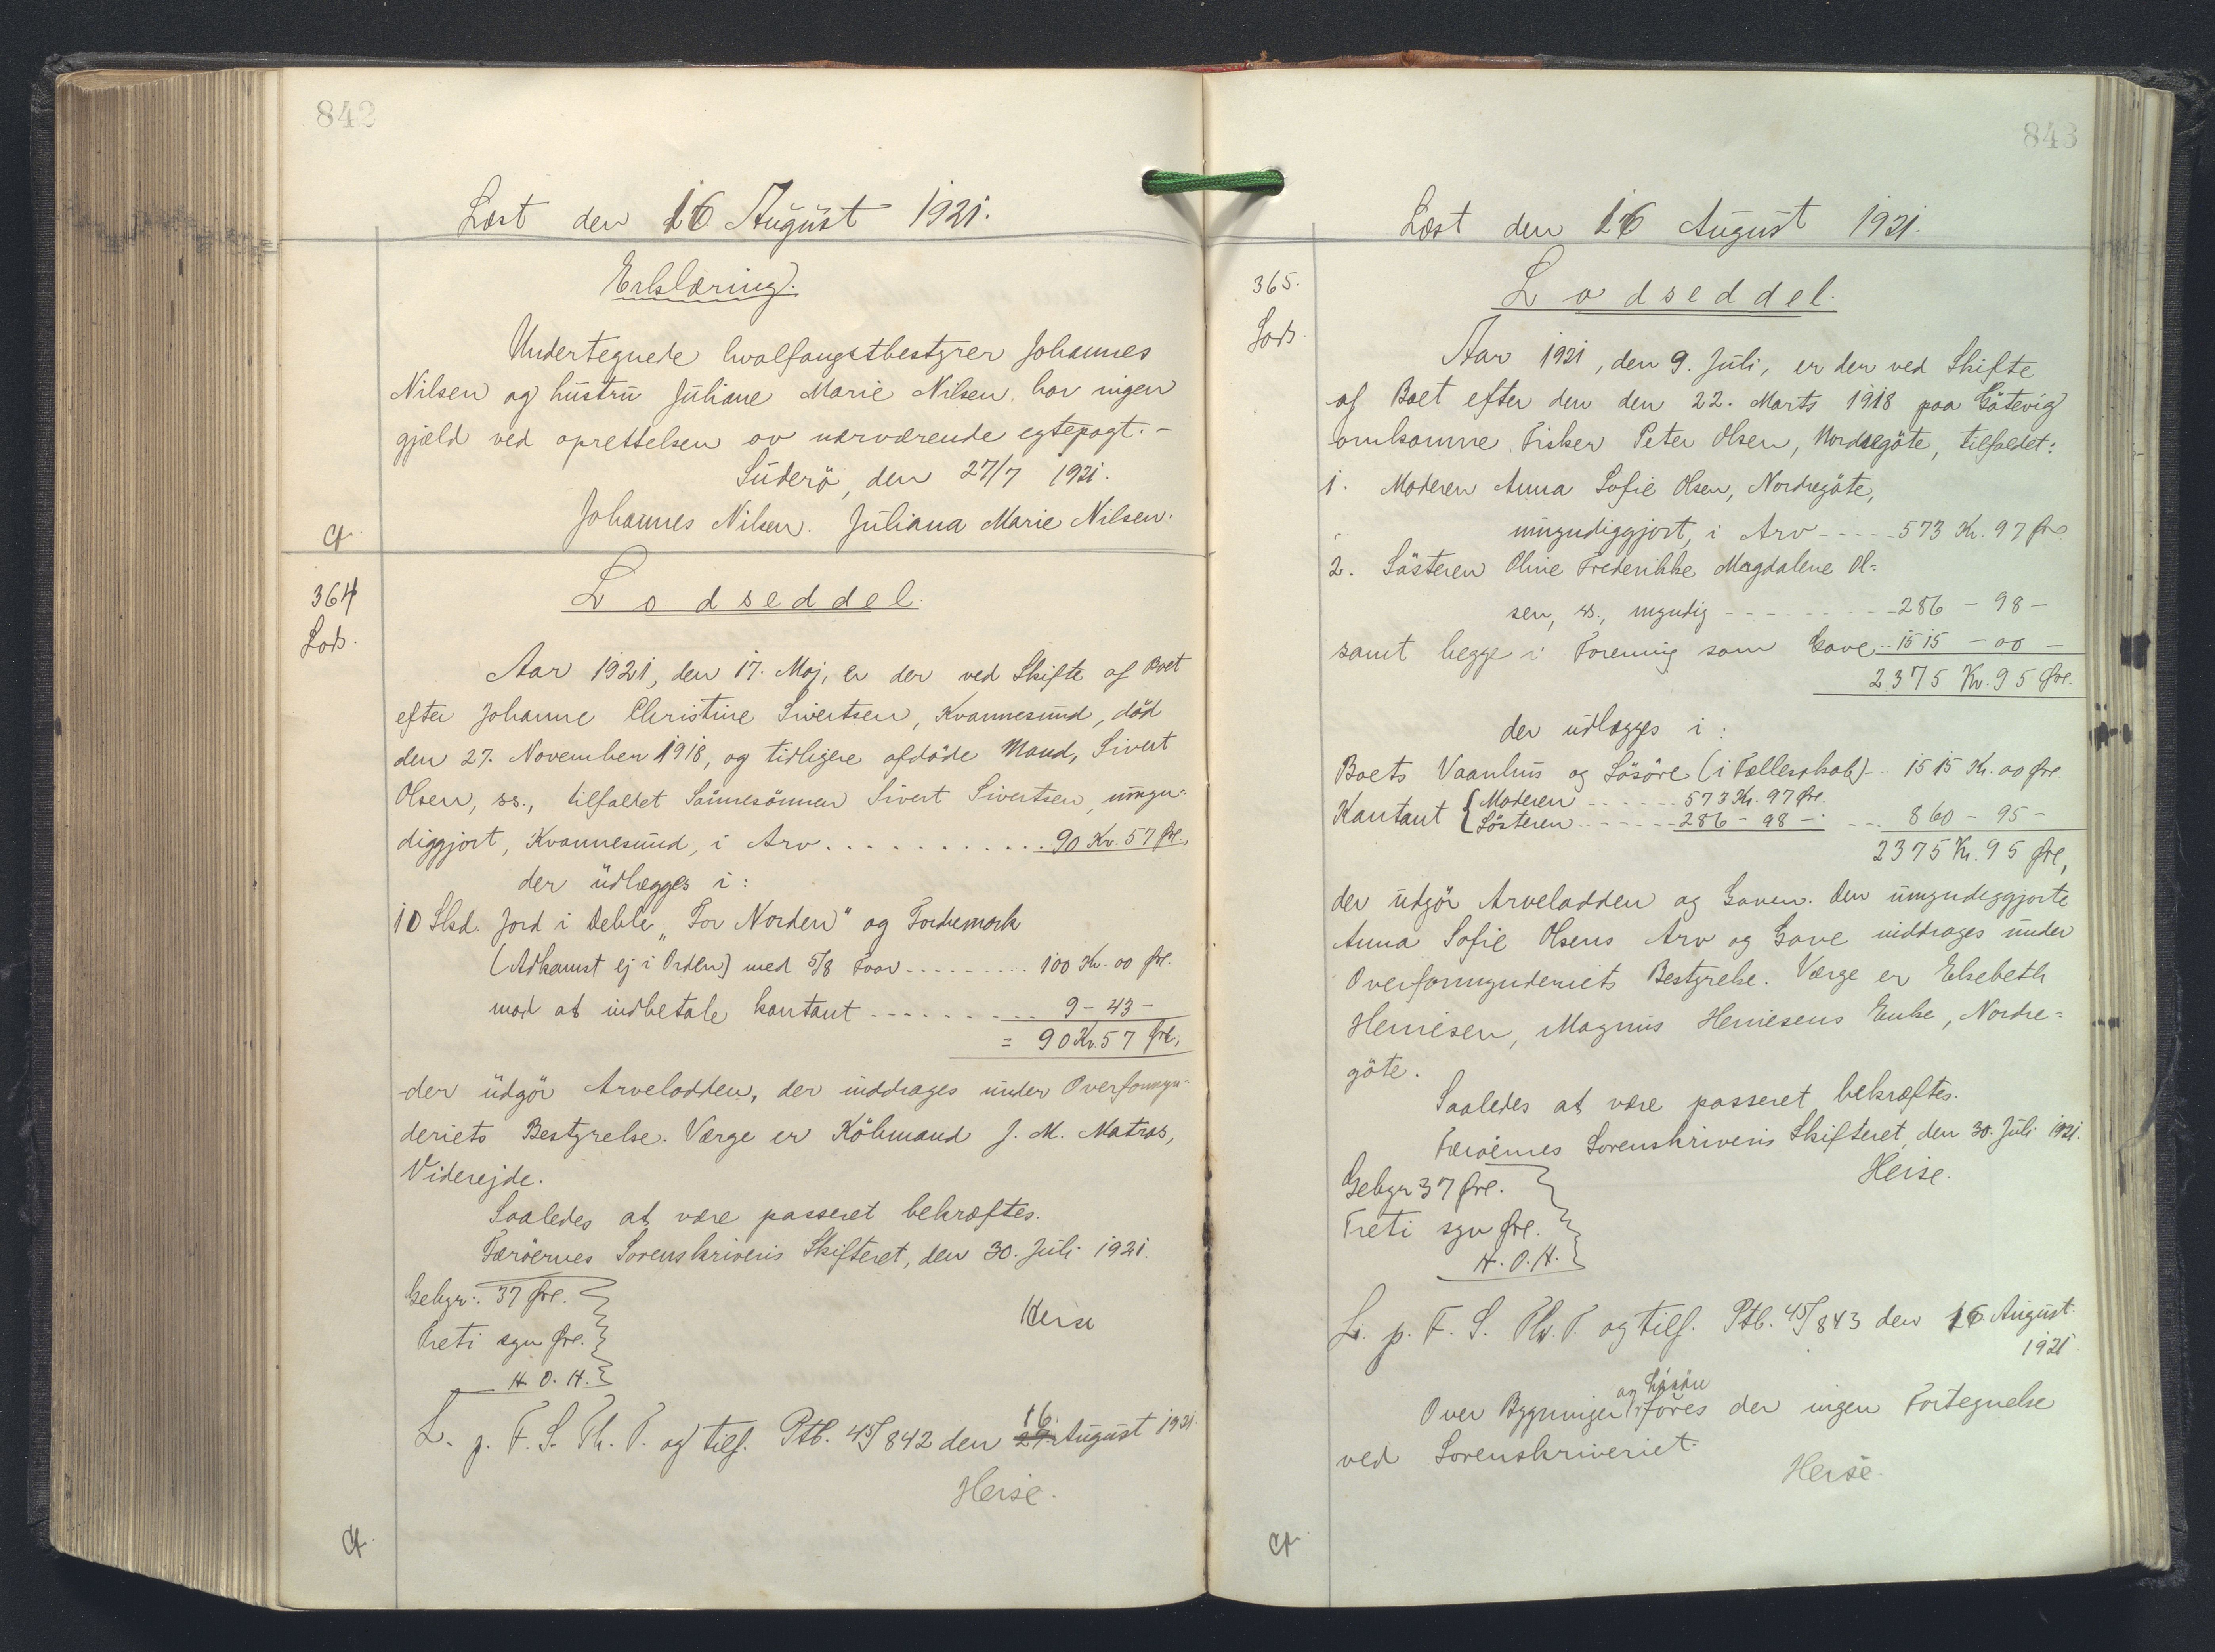 842
Læst den 16 August 1921.
Erklæring.
Undertegnede hvalfangstbestyrer Johannes
Nilsen og hustru Juliane Marie Nilsen, har ingen
gjæld ved oprettelsen av nærværende egtepagt. -
Suderö, den 27/7 1921.
Johannes Nilsen. Juliana Marie Nilsen.
Cf.
364
Lods.
Lodseddel.
Aar 1921, den 17. Maj, er der ved Skifte af Boet
efter Johanne Christine Sivertsen, Kvannesund, död
den 27. November 1918, og tidligere afdöde Mand, Sivert
Olsen, ss., tilfaldet Sönnesönnen Sivert Sivertsen, umyn-
diggjort, Kvannesund, i Arv . . . . . . . . . . . 90 Kr. 57 Øre.,
der udlægges i:
10 Slsd. Jord i Deble „For Norden" og Fordumork
(Adkomst ej i Orden) med 5/8 Faar - - - - - - - - 100 Kr. 00 Øre.
mod at indbetale kontant - - - - - - - - - 9 - 43 -
= 90 Kr. 57 Øre,
der udgör Arvelodden, der inddrages under Overformyn-
deriets Bestyrelse. Værge er Köbmand J. M. Matras,
Viderejde.
Saaledes at være passeret bekræftes.
Færöernes Sorenskriveris Skifteret, den 30. Juli 1921.
Gebyr: 37 Øre.
Heise
Treti syv Øre.
H. O. H.
L. p. F. S. Th. T. og tilf. Ptb. 45/842 den 16. August 1921.
Heise.
Cf.
843
Læst den 16 August 1921.
365.
Lods.
Lodseddel.
Aar 1921, den 9. Juli, er der ved Skifte
af Boet efter den den 22. Marts 1918 paa Götevig
omkomne Fisker Peter Olsen, Nordregöte, tilfaldet:
1. Moderen Anna Sofie Olsen, Nordregöte,
umyndiggjort, i Arv - - - - - 573 Kr. 97 Øre
2. Sösteren Oline Frederikke Magdalene Ol=
sen, ss., myndig - - - - - - - - - 286 - 98 -
samt begge i Forening som Gave - - 1515 - 00 -
2375 Kr. 95 Øre.
der udlægges i:
Boets Vaanhus og Lösöre (i Fællesskab) - - 1515 Kr. 00 Øre.
Kontant { Moderen - - - - - - 573 Kr. 97 Øre.
Sösteren - - - - - - 286 - 98 - - - - 860 - 95 -
2375 Kr. 95 Øre,
der udgör Arvelodden og Gaven. Den umyndiggjorte
Anna Sofie Olsens Arv og Gave inddrages under
Overformynderiets Bestyrelse. Værge er Elsebeth
Heniesen, Magnus Heniesens Enke, Nordre=
göte.
Saaledes at være passeret bekræftes.
Færöernes Sorenskriveris Skifteret, den 30. Juli 1921.
Heise.
Gebyr 37 Øre.
Treti syv Øre.
H. O. H.
L. p. F. S. Th. T. og tilf. Ptb. 45/843 den 16. August
1921.
Over Bygninger og Lösöre föres der ingen Fortegnelse
ved Sorenskriveriet.
Heise.
Cf.